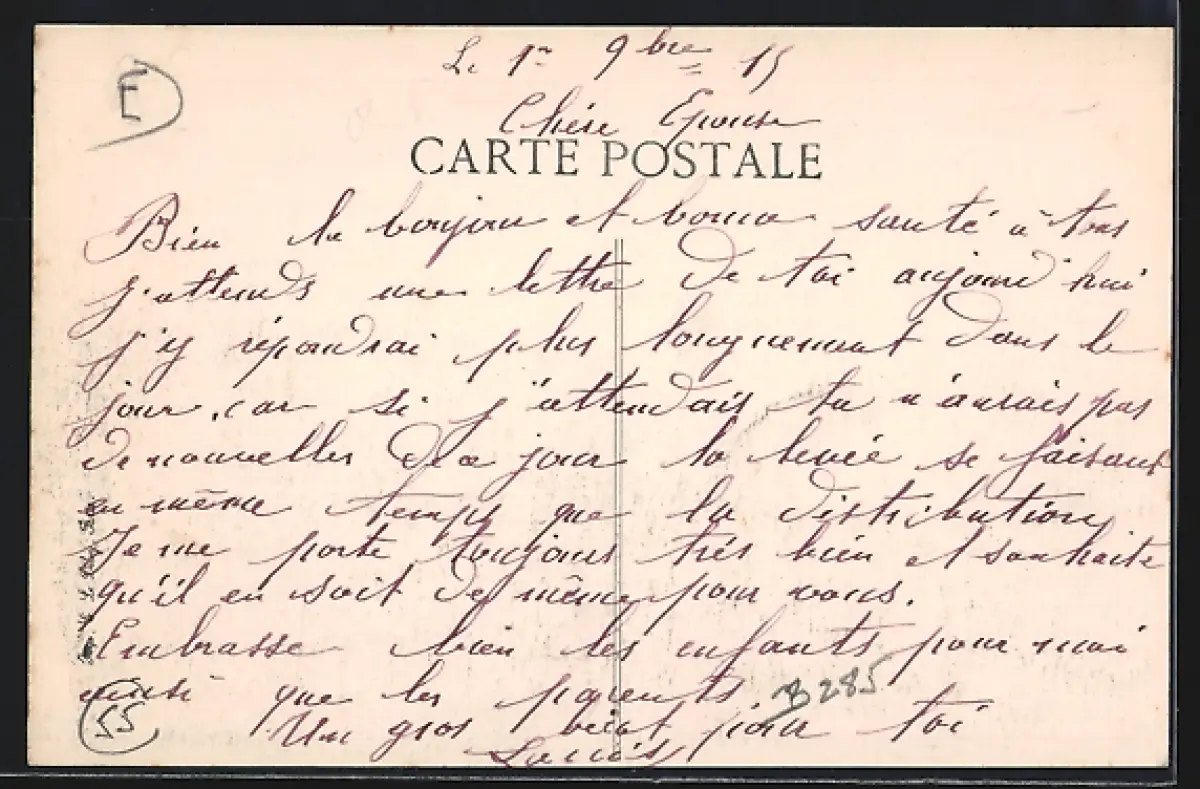 Le 1er 9bre 15
E
Chère Epouse
CARTE POSTALE
Bien le bonjour et bonne santé à tous
j'attends une lettre de toi aujourd'hui
j'y répondrai plus longuement dans le
jour, car si j'attendais tu n'aurais pas
de nouvelles de ce jour la levée se faisant
en même temps que la distribution
Je me porte toujours très bien et souhaite
qu'il en soit de même pour vous.
Embrasse bien les enfants pour moi
ainsi que les parents
B 285
55
Un gros bécot pour toi
Louis